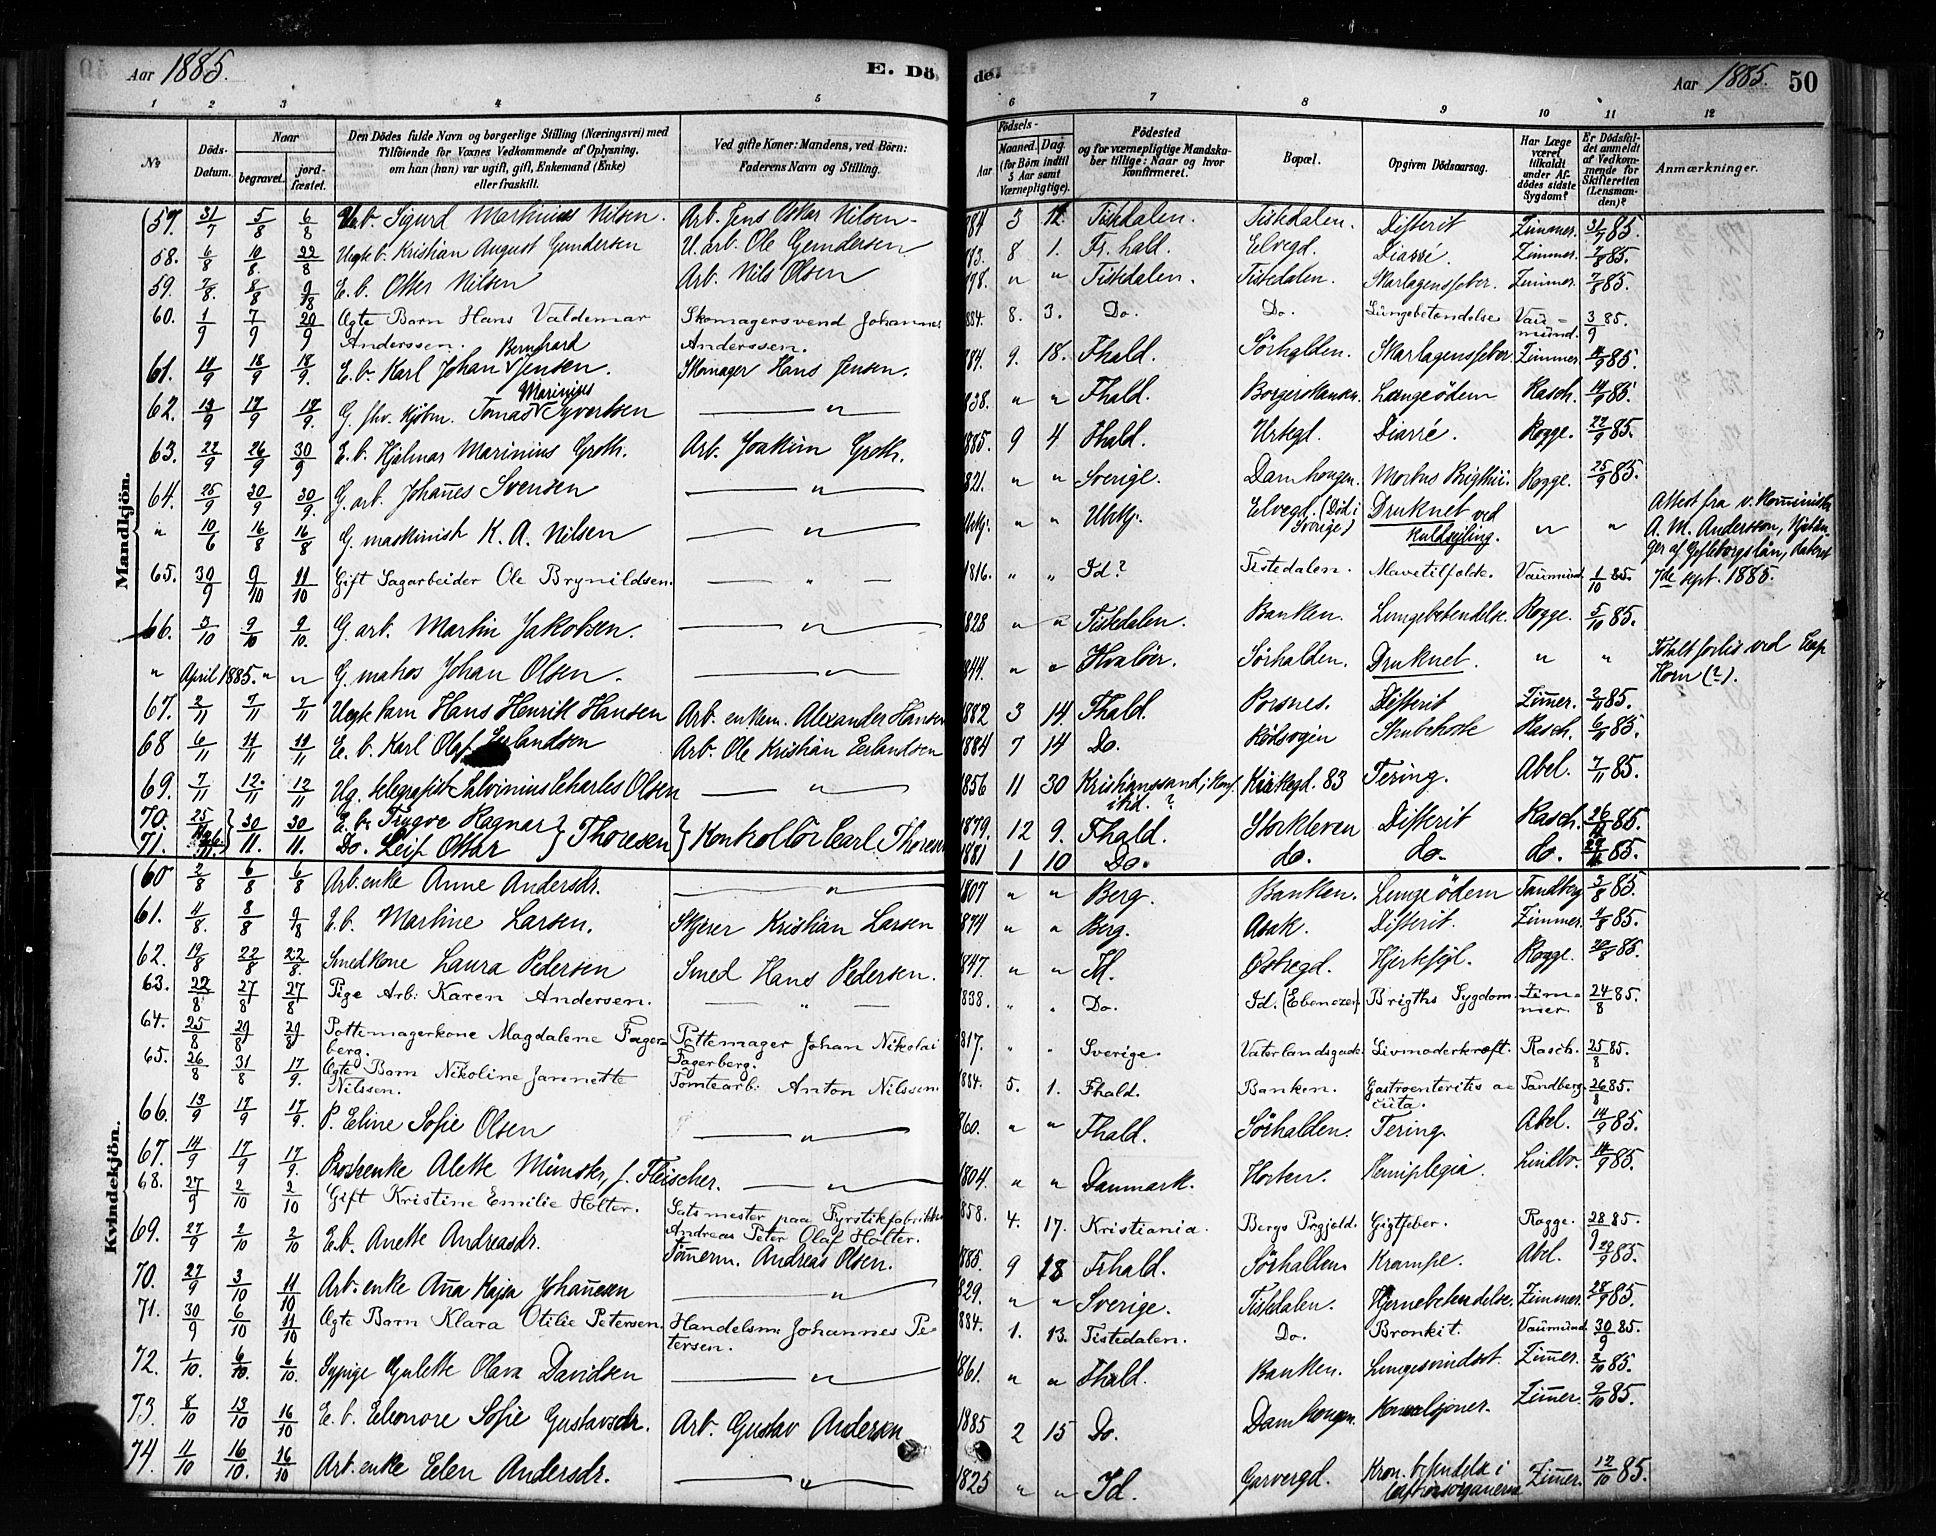 Aar 1885. E. Dö de. Aar 1885. 50
1 2 3 4 5 6 7 8 9 10 11 12
No. Döds-Datum. Naar begravet. jordfæstet. Den Dödes fulde Navn og borgerlige Stilling (Næringsvei) med Tilföiende for Voxnes Vedkommende af Oplysning, om han (hun) var ugift, gift, Enkemand (Enke) eller fraskilt. Ved gifte Koner: Mandens, ved Börn: Faderens Navn og Stilling. Födsels- Aar Maaned. Dag. (for Börn indtil 5 Aar samt Værnepligtige). Födested og for værnepligtige Mandskaber tillige: Naar og hvor Konfirmeret. Bopæl. Opgiven Dödsaarsag. Har Læge været tilkaldt under Afdödes sidste Sygdom? Er Dödsfaldet anmeldt af Vedkommende for Skifteretten (Lensmanden)? Anmærkninger.
Mandkjön.
57. 31/7 5/8 6/8 E. b. Sigurd Martinius Nilsen. Arb. Jens Oskar Nilsen 84 5 12. Tistedalen. Tistedalen. Difterit Zimmer. 31/7 85.
58. 6/8 10/8. 22/8 Uegte b. Kristian August Gundersen U. arb. Ole Gundersen 83. 8 1. Fr. hald. Elvegd. Diarré. Zimmer. 7/8 85.
59. 7/8. 8/8 9/8 E. b. Otter Nilsen Arb. Nils Olsen 78. " " Tistedalen. Tistedalen. Skarlagensfeber. Zimmer. 7/8 85.
60. 1/9 7/9 20/9 Ægte Barn Hans Valdemar Anderssen. Skomagersvend Johannes Anderssen. 884. 8. 3. Do. Do. Lungebetændelse Vaumund. 3/9 85.
61. 11/9 18/9 18/9. E. b. Karl Johan Bernhard Jensen. Skomager Hans Jensen. 84. 9. 18. Fhald. Sörhalden. Skarlagensfeber Zimmer. 14/9 85.
62. 13/9 17/9 17/9. G. fhv. Kjöbm. Tomas Marinius Syvertsen " 838. " " Fhald. Lungeödem Rasch. 14/9 85.
63. 22/9 26/9 30/9 E. b. Hjalmar Marinius Groth. Arb. Joakim Groth. 1885. 9 4 Fhald. Urtegd. Diarré. Rogge. 22/9 85.
64. 25/9 30/9 30/9. G. arb. Johannes Svensen " 821. " " Sverige. Damhougen. Morbus Brigthii. Rogge. 25/9 85.
" 10/6 16/8 16/8 G. maskinist K. A. Nilsen " " " Elvegd. (Död i Sverige) Druknet ved Kuldseiling. " " Attest fra v. Komminister A. M. Andersson, af Gefleborgslän, dateret 7de sept. 1885.
65. 30/9 9/10 11/10 Gift Sagarbeider Ole Brynildsen. " 1816. " " Id? Tistedalen. Mavetilfælde. Vaumund. 1/10 85.
66. 3/10 9/10 9/10. G. arb. Martin Jakobsen. " 1828 " " Tistedalen. Banken. Lungebetendelse. Rogge. 5/10 85.
" April 1885. " " G. matros Johan Olsen. " 844. " " Hvaløer. Sörhalden. Druknet. " " Totalt forlis ved Cap Horn (?).
67. 2/11 7/11 7/11 Uegte barn Hans Henrik Hansen Arb. enkem. Alexander Hansen 1882 3 14. Fhald. Porsnes. Difterit Zimmer. 2/11 85.
68 6/11 11/11 11/11 E. b. Karl Olaf Erlandsen Arb. Ole Kristian Erlandsen 1884 7 14 Do. Strubehoste Rasch. 6/11 85.
69. 7/11 12./11 12/11 Ug. telegrafist Salvinius Charles Olsen " 1856 11 30 Kristianssand; Konf. ? Kirkegd. 83 Tering. Abel. 7/11 85.
70. 25/11 30/11. 30/11. E. b. Trygve Ragnar } Thoresen } Kontrollör Carl Thoresen 1879. 12 9. Fhald. Storkleven Difterit Rasch. 26/11 85.
71. Do. Leif Ottar 1881 1 10 Do. do. do. do. 85.
Kvindekjön.
60 2/8 6/8 6/8 Arb. enke Anne Andersdr. " 1807 " " Berg. Banken. Lungeödem Tandberg 3/8 85.
61. 4/8. 8/8 9/8 E. b. Martine Larsen. Skjerer Kristian Larsen 1874 " " Berg. Asak. Difterit. Zimmer. 7/8 85.
62. 19/8 22/8 22/8. Smedkone Laura Pedersen Smed Hans Pedersen. 847. " " Id. Östregd. Hjertefejl. Rogge. 20/8 85.
63. 22/8 27/8 27/8 Pige Arb: Karen Andersen. " 838. " " Do. Id. (Ebenezer) Brigths Sygdom. Zimmer. 24/8 85.
64. 25/8 29/8 29/8 Pottemagerkone Magdalene Fagerberg. Pottemager Johan Nikolai Fagerberg. 817. " " Sverige. Vaterlandsgade. Livmoderkræft. Rasch. 25/8 85.
65. 26/8 31/8 17/9. Ægte Barn Nikoline Jannette Nilssen. Tomtearb: Anton Nilssen. 1884. 5. 1. Fhald. Banken. Gastroenteritis acuta. Tandberg. 26/8 85.
66. 13/9 17/9 17/9. P. Eline Sofie Olsen " 860. " " Fhald. Sörhalden. Tering Abel. 14/9 85.
67. 14/9 17/9 17/9. Enke Alette Münster, f. Fleischer. " 1804. " " Danmark. Horten. Hemiplegia. Lindbo. 14/9 85.
68. 27/9 2/10 2/10 Gift Kristine Emilie Holter. Satsmester paa Fyrstikfabriken Andreas Peter Olaf Holter. 858. 4. 17. Kristiania. Bergs Prgjeld. Gigtfeber. Rogge. 28/9 85.
69. 27/9 2/10 2/10 E. b. Anette Andreasdr. Tömmerm. Andreas Olsen. 885. 9 18 Frhald. Sörhalden Krampe. Abel. 29/9 85.
70. 27/9 3/10 11/10 Arb. enke Anna Kajsa Johannesen " 829. " " Sverige. Tistedalen. Hjernebetendelse. Zimmer. 28/9 85.
71. 30/9 6/10 11/10 Ægte Barn Klara Otilie Petersen. Handelsm: Johannes Petersen. 884. 1. 13. Tistedalen. Do. Bronkit. Vaumund. 30/9 85.
72. 1/10. 6/10. 6/10. Sypige Gulette Olava Davidsen " 1861. " " Fhald. Banken. Lungesvindsot. Zimmer. 2/10 85.
73. 8/10 13/10 16/10 E. b. Eleonore Sofie Gustavsdr. Arb. Gustav Andersen 1885 2 15 Do. Damhougen. Konvulsjoner. Zimmer. 9/10 85.
74. 11/10 16/10. 16/10 Arb. enke Elen Andersdr. " 1825 " " Id. Garvergd. Kron. betendelse i Zimmer. 12/10 85.